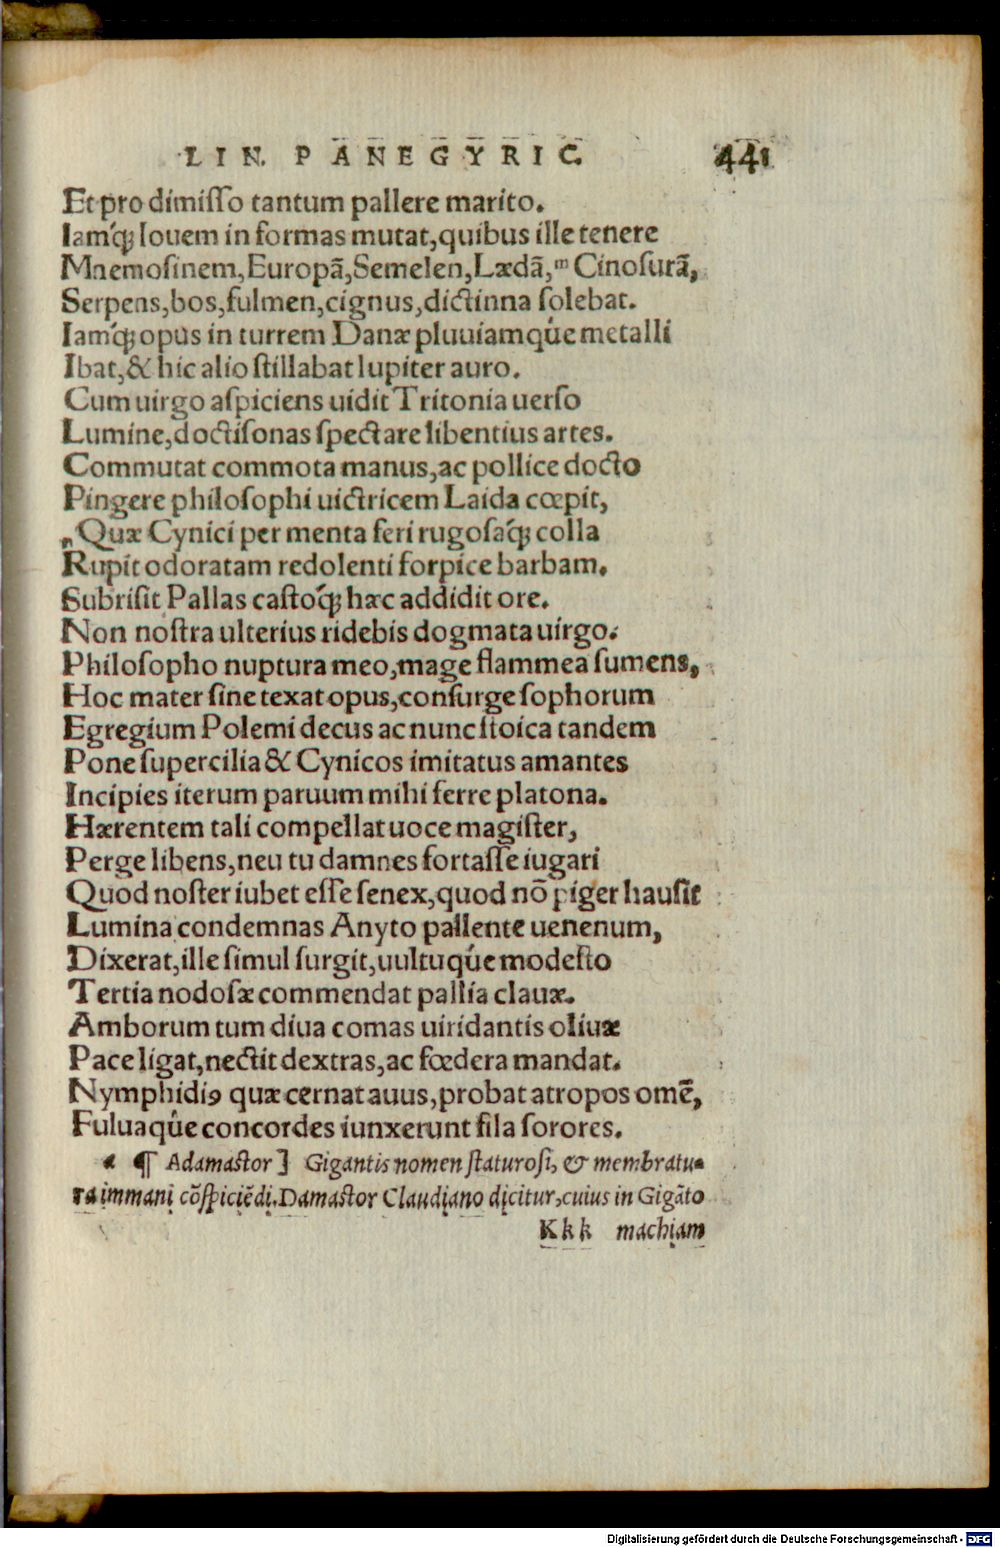 LIN. PANEGYRIC. 441
Et pro dimiſſo tantum pallere marito.
Iamq́ꝫ Iouem in formas mutat,quibus ille tenere
Mnemoſinem,Europã,Semelen,Lædã,ᵐ Cinoſurã,
Serpens,bos,fulmen,cignus,dictinna ſolebat.
Iamq́ꝫ opus in turrem Danæ pluuiamq́ue metalli
Ibat,& hic alio ſtillabat Iupiter auro.
Cum uirgo aſpiciens uidit Tritonia uerſo
Lumine,doctiſonas ſpectare libentius artes.
Commutat commota manus,ac pollice docto
Pingere philoſophi uictricem Laida cœpit,
ⁿ Quæ Cynici per menta feri rugoſaq́ꝫ colla
Rupit odoratam redolenti forpice barbam.
Subriſit Pallas caſtoq́ꝫ hæc addidit ore.
Non noſtra ulterius ridebis dogmata uirgo.
Philoſopho nuptura meo,mage flammea ſumens,
Hoc mater ſine texat opus,conſurge ſophorum
Egregium Polemi decus ac nunc ſtoica tandem
Pone ſupercilia & Cynicos imitatus amantes
Incipies iterum paruum mihi ferre platona.
Hærentem tali compellat uoce magiſter,
Perge libens,neu tu damnes fortaſſe iugari
Quod noſter iubet eſſe ſenex,quod nõ piger hauſit
Lumina condemnas Anyto pallente uenenum,
Dixerat,ille ſimul ſurgit,uultuq́ue modeſto
Tertia nodoſæ commendat pallia clauæ.
Amborum tum diua comas uiridantis oliuæ
Pace ligat,nectit dextras,ac fœdera mandat.
Nymphidiꝰ quæ cernat auus,probat atropos omẽ,
Fuluaq́ue concordes iunxerunt fila ſorores.
a ¶ Adamastor] Gigantis nomen ſtaturoſi, & membratu-
ra immani cõſpiciẽdi. Damastor Claudiano dicitur,cuius in Gigãto
Kkk machiam
Digitalisierung gefördert durch die Deutsche Forschungsgemeinschaft - DFG